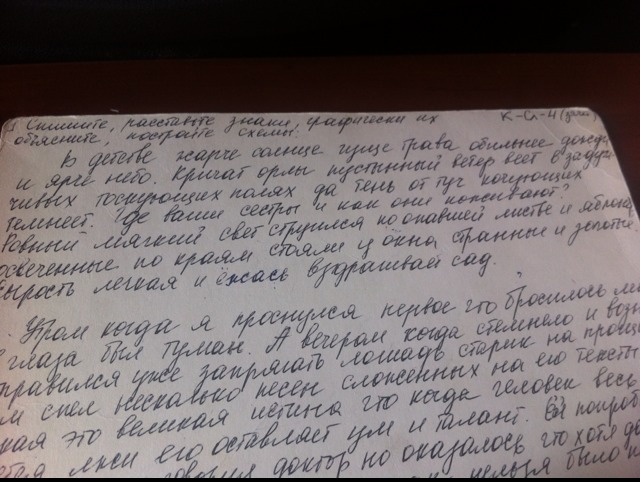 Спишите, расставьте знаки, графически их К-Сл-4
объясните, постройте схемы.
В детстве жарче солнце гуще трава обильнее дожди
и ярче небо. Кричат орлы пустынный ветер веет в задум
чивых тоскующих полях да тень от туч кочующих
темнеет. Где ваши сестры и как они поживают?
Ровный мягкий свет струился по опавшей листве и яблоки
освеченные по краям стояли у окна странные и золотые.
Сырость легкая и ёжась вздрагивай сад.
Утром когда я проснулся первое что бросилось мне
в глаза был туман. А вечером когда стемнело и
отправился уже запрягать лошадь старик на
спел несколько песен сложенных на его тексты
это великая истина что когда человек весь
лжи его оставляет ум и талант.
говорил доктор но оказалось что хотя
нельзя было